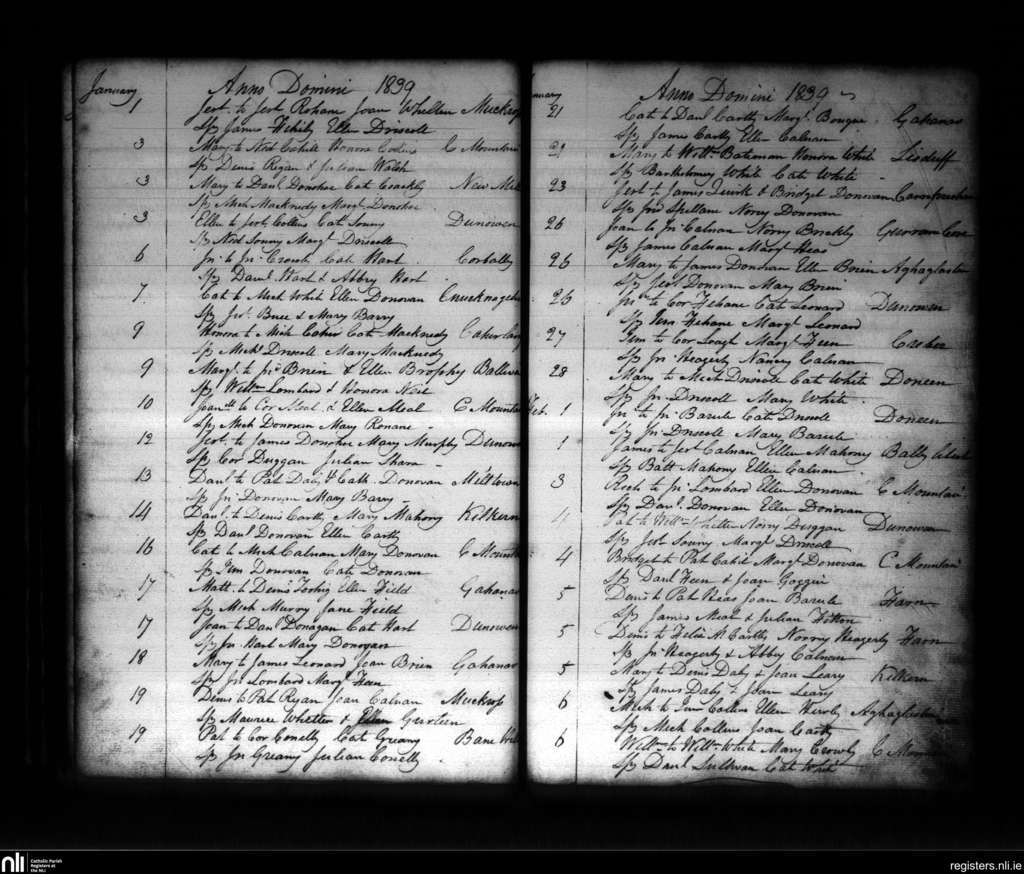 January Anno Domini 1839
1 Jert. to Jert Rohane Joan Whelten Muckros
Sp James Hehily Ellen Driscoll
3 Mary to Honora C Mountain
Sp Denis Regan & Julian Walsh
3 Mary to Danl Donohoe Cat Coackly New Mill
Sp Mich Macknedy Margt Donohoe
3 Ellen to Jert. Collins Cat Dunowen
Sp Margt Driscoll
6 Jn. to Jn. Cat Hart Corbally
Sp Danl. Hart & Abby Hart
7 Cat to Mich White Ellen Donovan
Sp & Mary Barry
9 Honora to Mich Cat Macknedy
Sp Michl Driscoll Mary Macknedy
9 Margt. to Jn. Brien & Ellen Brophy
Sp Willm Lombard & Honora Neil
10 to Cor Meal & Ellen Meal C Mountain
Sp Mich Donovan Mary Ronane
12 Jert. to James Donohoe Mary Murphy
Sp Cor Duggan Julian Shara
13 Danl to Pat Daly & Cath. Donovan Milltown
Sp Jn Donovan Mary Barry
14 Danl. to Denis Carthy Mary Mahony Kilkern
Sp Danl Donovan Ellen Carthy
16 Cat to Mich Calnan Mary Donovan C Mountain
Sp Tim Donovan Cate Donovan
17 Matt to Denis Ellen Field Gahanar
Sp Mich Murry Jane Field
17 Joan to Danl Donagan Cat Hart Dunowen
Sp Jn Hart Mary Donovan
18 Mary to James Leonard Joan Brien Gahanar
Sp Jn Lombard Margt Feen
19 Denis to Pat Ryan Joan Calnan Muckros
Sp Maurice Whelten & Ellen
19 Pat to Cor Conelly Cat Greany
Sp Jn Greany Julian Conelly
Anno Domini 1839
21 Cat to Danl Carthy Margt. Gahanar
Sp James Carthy Ellen Calnan
21 Mary to Willm Bateman Honora White Lisduff
Sp Bartholomew White Cate White
23 Jert to James Quirk & Bridget Donovan
Sp Jno Spellane Norry Donovan
26 Joan to Jn. Calnan Norry Brickly
Sp James Calnan Margt Heas
26 Mary to James Donovan Ellen Brien
Sp Jert Donovan Mary Brien
26 to Cor Fehane Cat Leonard Dunowen
Sp Fehane Margt Leonard
27 Tim to Cor Margt Feen
Sp Jn. Heagerty Nancy Calnan
28 Mary to Mich Driscoll Cat White Doneen
Sp Jn Driscoll Mary White
Feb. 1 Jn to Jn Barule Cate Driscoll Doneen
Sp Jn Driscoll Mary Barule
1 James to Jert Calnan Ellen Mahony
Sp Batt Mahony Ellen Calnan
3 to Jn Lombard Ellen Donovan C Mountain
Sp Danl. Donovan Ellen Donovan
4 Pat to Willm Whelten Norry Duggan Dunowen
Sp Jert Margt Driscoll
4 Bridget to Pat Margt Donovan C Mountain
Sp Danl Feen & Joan Goggin
5 Denis to Pat Heas Joan Barule Farn
Sp James Meal & Julian
5 Denis to Felix McCarthy Norry Heagerty Farn
Sp Jn Heagerty & Abby Calnan
5 Mary to Denis Daly & Joan Leary Kilkern
Sp James Daly & Joan Leary
6 Mich to Collins Ellen
Sp Mich Collins Joan Carthy
6 Willm to Willm White Mary Crowly C Mountain
Sp Danl Sullivan Cat White
nli Catholic Parish Registers at the NLI
registers.nli.ie